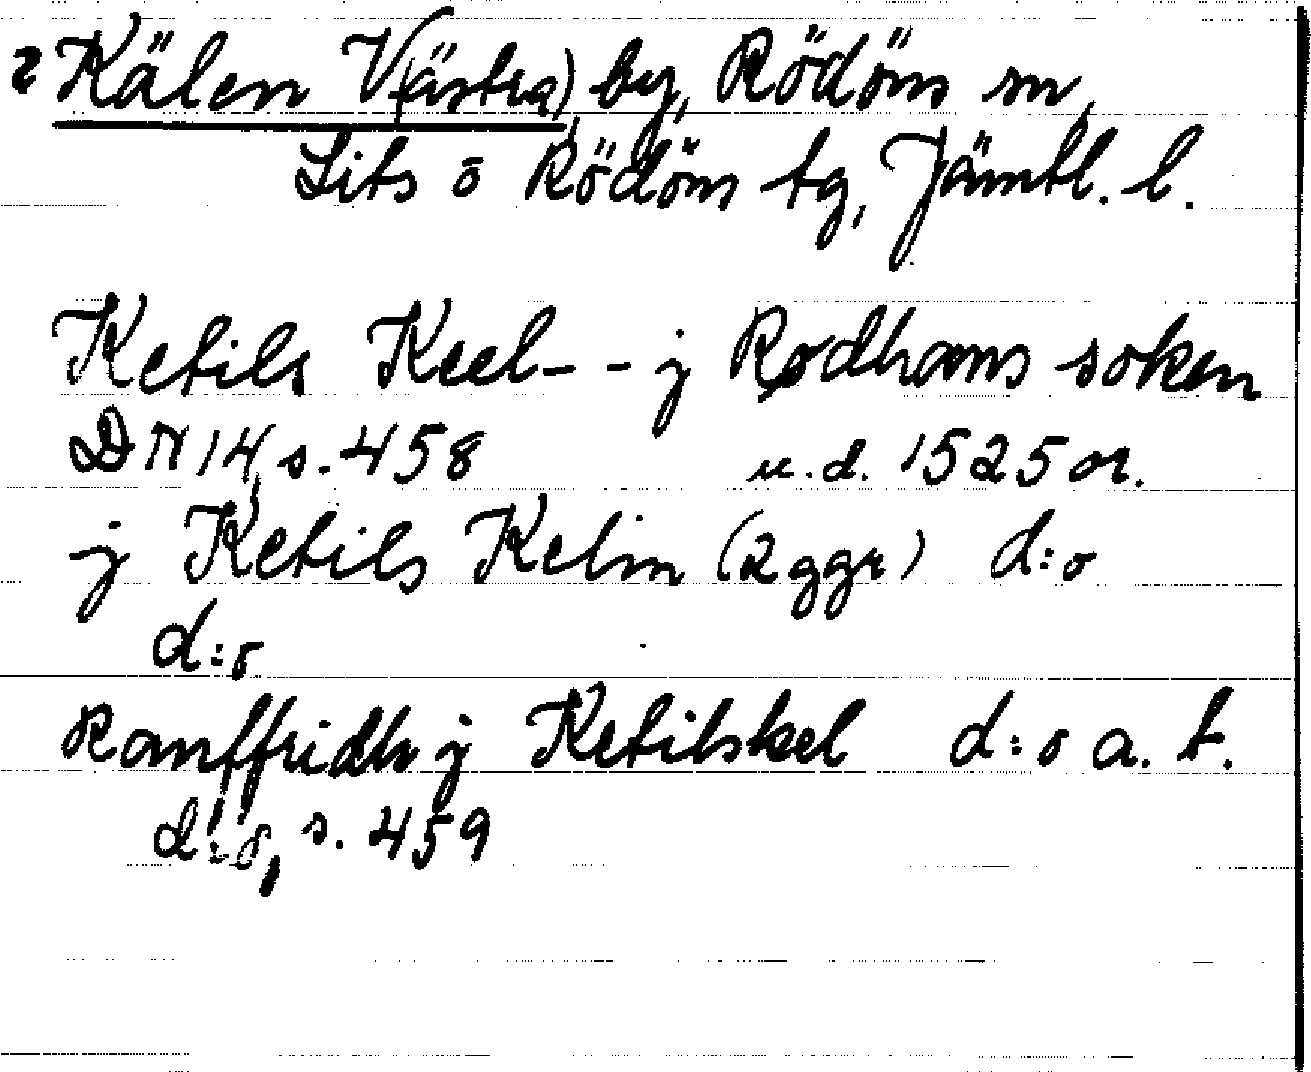 2 Kälen V(ästra) by, Rödöns sn,
Lits o Rödöns tg, Jämtl. l.
Ketils Keel-- j Rødhams soken
DN 14, s. 458 u.d. 1525 or.
j Ketils Kelin (2 ggr) d:o
d:o
Ranffridh j Ketilskel d:o a. t.
d:o, s. 459